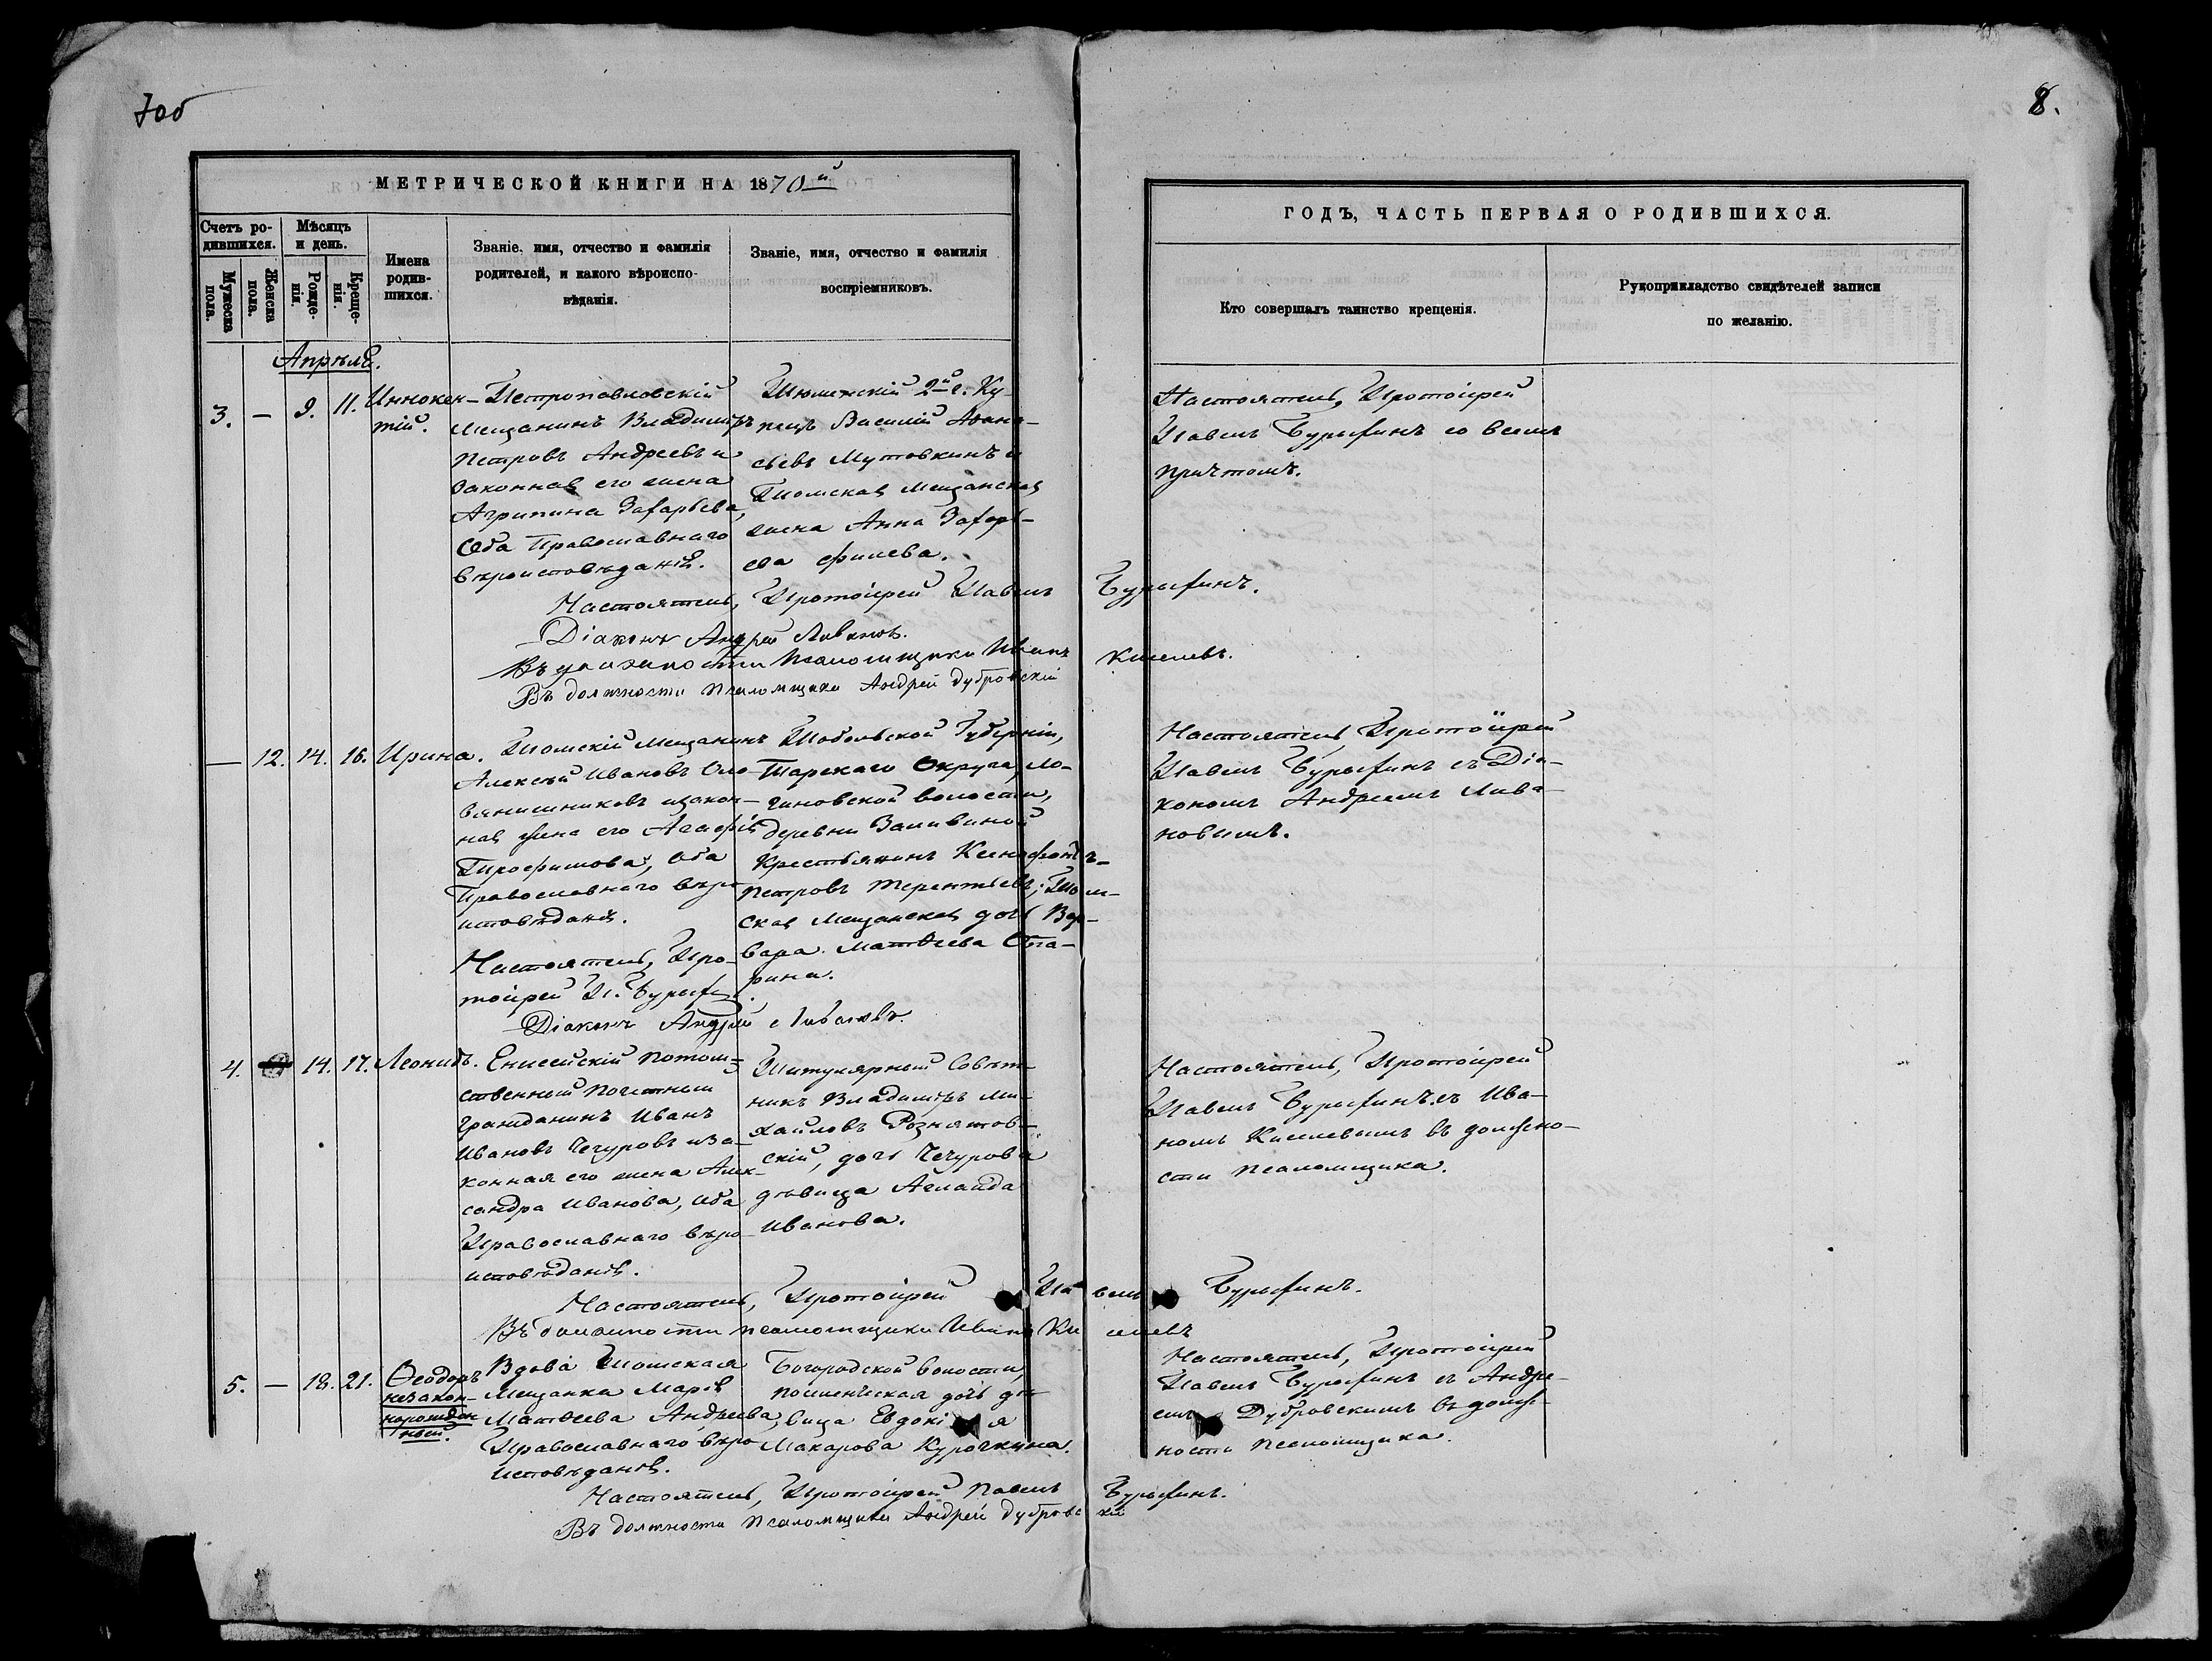 7об
8.
МЕТРИЧЕСКОЙ КНИГИ НА 1870й
ГОДЪ, ЧАСТЬ ПЕРВАЯ О РОДИВШИХСЯ.
Счетъ ро-
дившихся.
Мужеска
пола.
Женска
пола.
Мѣсяцъ
и день.
Рожде-
нія.
Креще-
нія.
Имена
родив-
шихся.
Званіе, имя, отчество и фамилія
родителей, и какого вѣроиспо-
вѣданія.
Званіе, имя, отчество и фамилія
воспріемниковъ.
Кто совершалъ таинство крещенія.
Рукоприкладство свидѣтелей записи
по желанію.
Апрѣль.
3. — 9. 11. Иннокен-
тій.
Петропавловскій
Мещанинъ Владиміръ
Петровъ Андреевъ и
законная его жена
Агрипина Захарьева,
Оба Православнаго
вѣроисповѣданія.
Тюменскій 2й г. Ку-
пецъ Василій Афана-
сьевъ Мутовкинъ и
Томская Мещанская
жена Анна Захарь-
ева Филева.
Настоятель, Протоіерей
Павелъ Бурыхинъ со всемъ
причтомъ.
Настоятель, Протоіерей Павелъ Бурыхинъ.
Діаконъ Андрей Ливановъ.
Въ должности Псаломщика Иванъ Киселевъ.
Въ должности Псаломщика Андрей Дубровскій
— 12. 14. 16. Ирина.
Томскій Мещанинъ
Алексѣй Ивановъ Оло-
вянишниковъ и закон-
ная жена его Агафія
Трофимова, Оба
Православнаго вѣро-
исповѣданія.
Тобольской Губерніи,
Тарскаго Округа, Ло-
гиновской волости,
деревни Заливиной
Крестьянинъ Ксенофонтъ
Петровъ Терентьевъ; Том-
ская Мещанская дочь Вар-
вара Матѳеева Ста-
рина.
Настоятель, Протоіерей
Павелъ Бурыхинъ съ Діа-
кономъ Андреемъ Лива-
новымъ.
Настоятель, Про-
тоіерей П. Бурыхинъ.
Діаконъ Андрей Ливановъ.
4. 14. 17. Леонидъ.
Енисейскій Потом-
ственный Почетный
Гражданинъ Иванъ
Ивановъ Чечуровъ и за-
конная его жена Алек-
сандра Иванова, Оба
Православнаго вѣро-
исповѣданія.
Титулярный Совѣт-
никъ Владиміръ Ми-
хайловъ Рознятов-
скій, дочь Чечурова
дѣвица Аглаида
Иванова.
Настоятель, Протоіерей
Павелъ Бурыхинъ съ Ива-
номъ Киселевымъ въ должно-
сти Псаломщика.
Настоятель, Протоіерей Павелъ Бурыхинъ.
Въ должности псаломщика Иванъ Киселевъ
5. — 18. 21. Ѳеодоръ
незакон-
норожден
ный.
Вдова Томская
Мещанка Марія
Матѳеева Андреева,
Православнаго вѣро-
исповѣданія.
Богородской волости,
дочь дѣ-
вица Евдокія
Макарова Курочкина.
Настоятель, Протоіерей
Павелъ Бурыхинъ съ Андре-
емъ Дубровскимъ въ долж-
ности Псаломщика.
Настоятель, Протоіерей Павелъ Бурыхинъ.
Въ должности Псаломщика Андрей Дубровскій